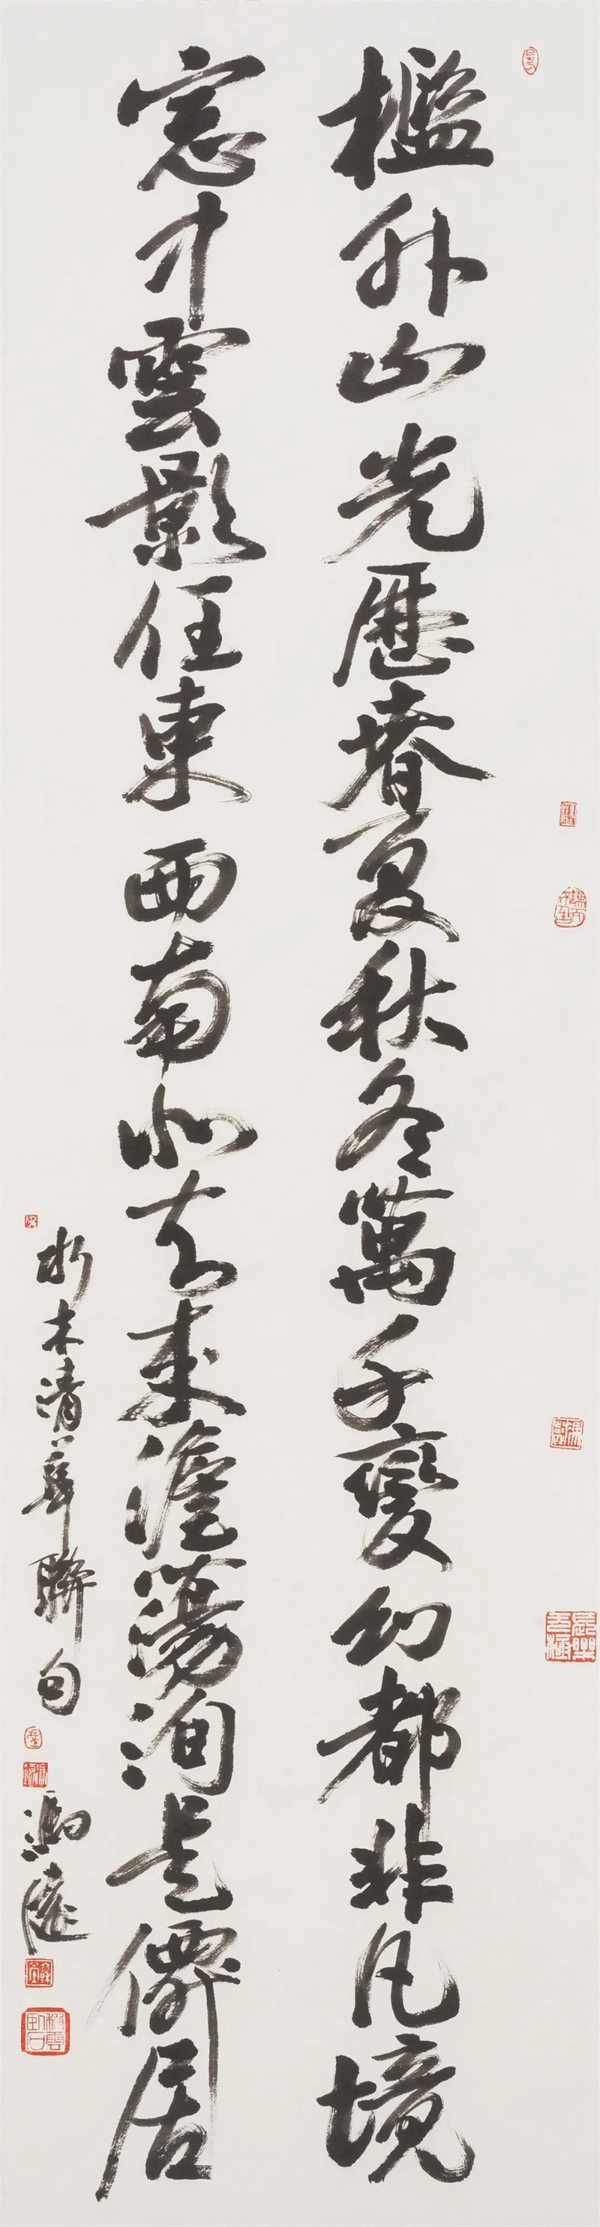 檻外山光歷春夏秋冬萬千變幻都非凡境
窓中雲影任東西南北去來澹蕩洵是僊居
水木清華聯句